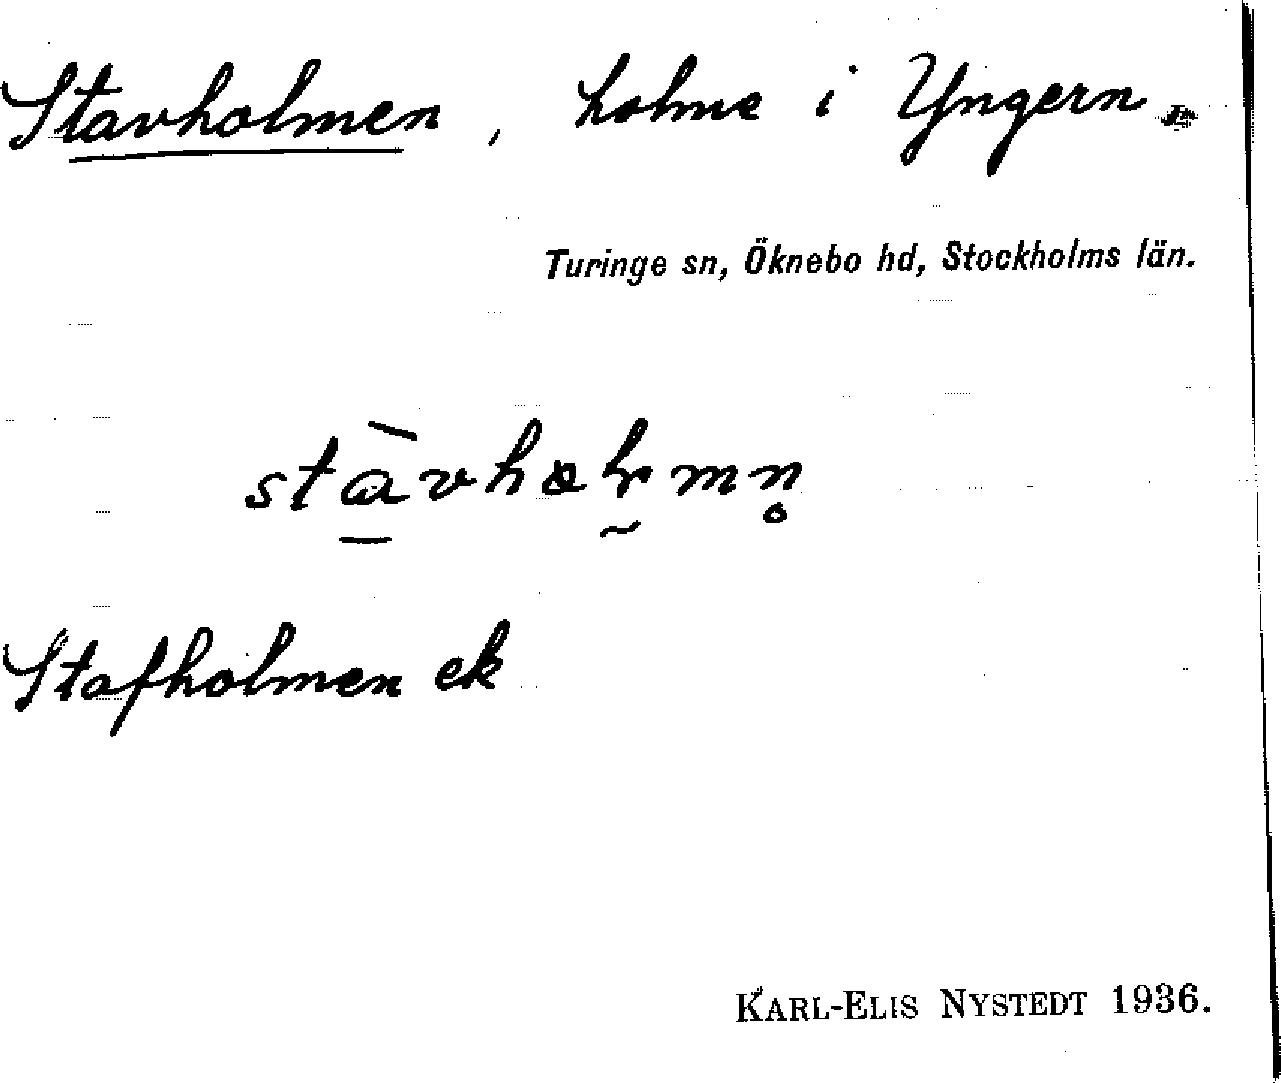 Stavholmen, holme i Yngern.
Turinge sn, Öknebo hd, Stockholms län.
Stafholmen ek
KARL-ELIS NYSTEDT 1936.